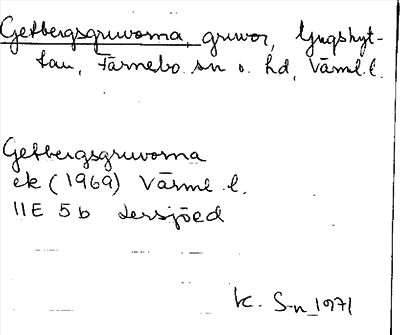 Getbergsgruvorna, gruvor, Ljugshyt-
tan, Färnebo sn o. hd, Värml. l.
Getbergsgruvorna
ek (1969) Värml. l.
11E 5b Lersjöed
K. S-n 1971